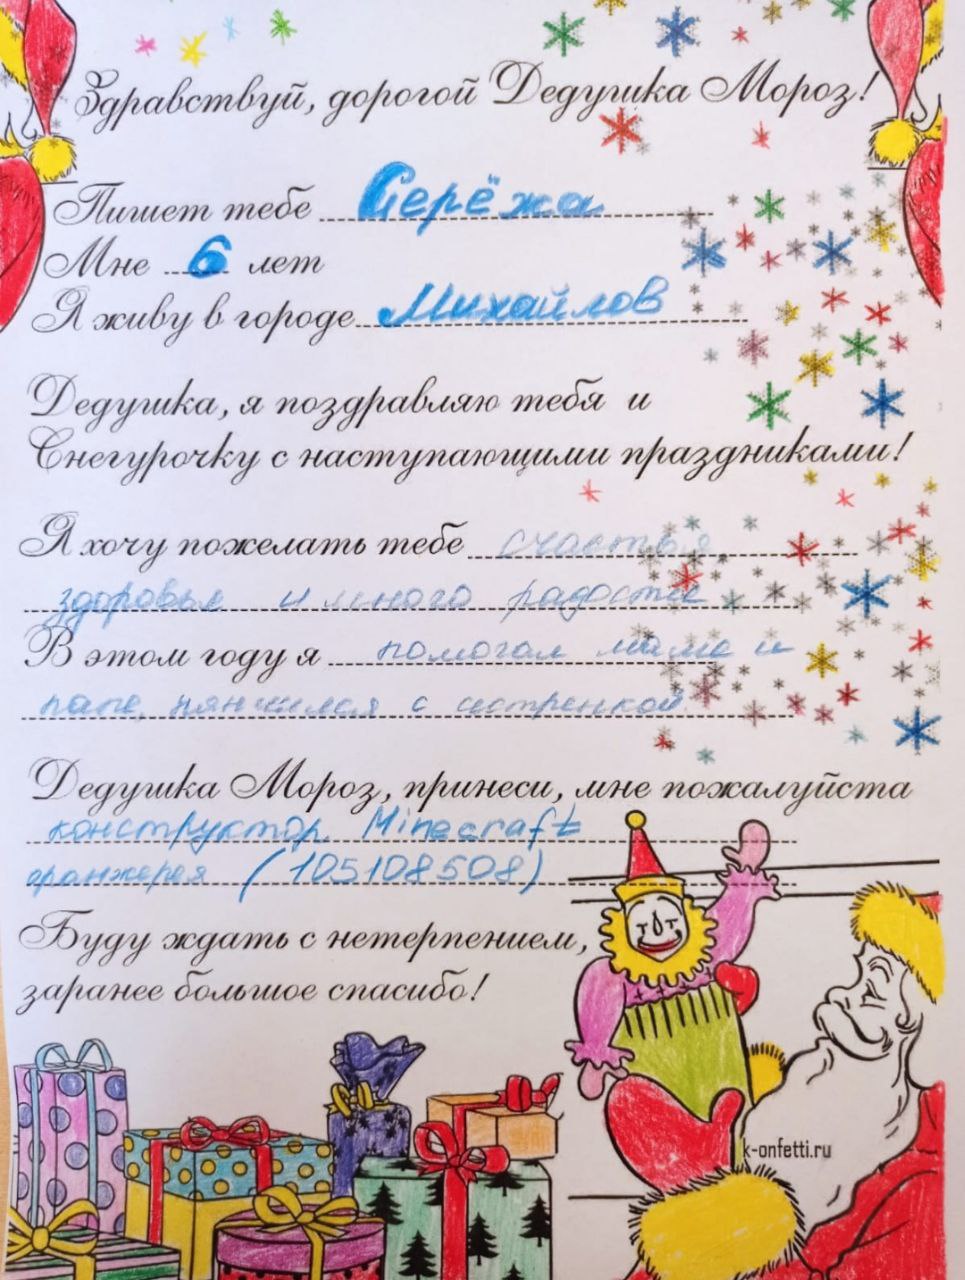 Здравствуй, дорогой Дедушка Мороз!
Пишет тебе Серёжа
Мне 6 лет
Я живу в городе Михайлов
Дедушка, я поздравляю тебя и
Снегурочку с наступающими праздниками!
Я хочу пожелать тебе счастья
здоровья и много радости
В этом году я помогал маме и
папе, нянчился с сестренкой
Дедушка Мороз, принеси, мне пожалуйста
конструктор Minecraft
оранжерея (105108508)
Буду ждать с нетерпением,
заранее большое спасибо!
k-onfetti.ru